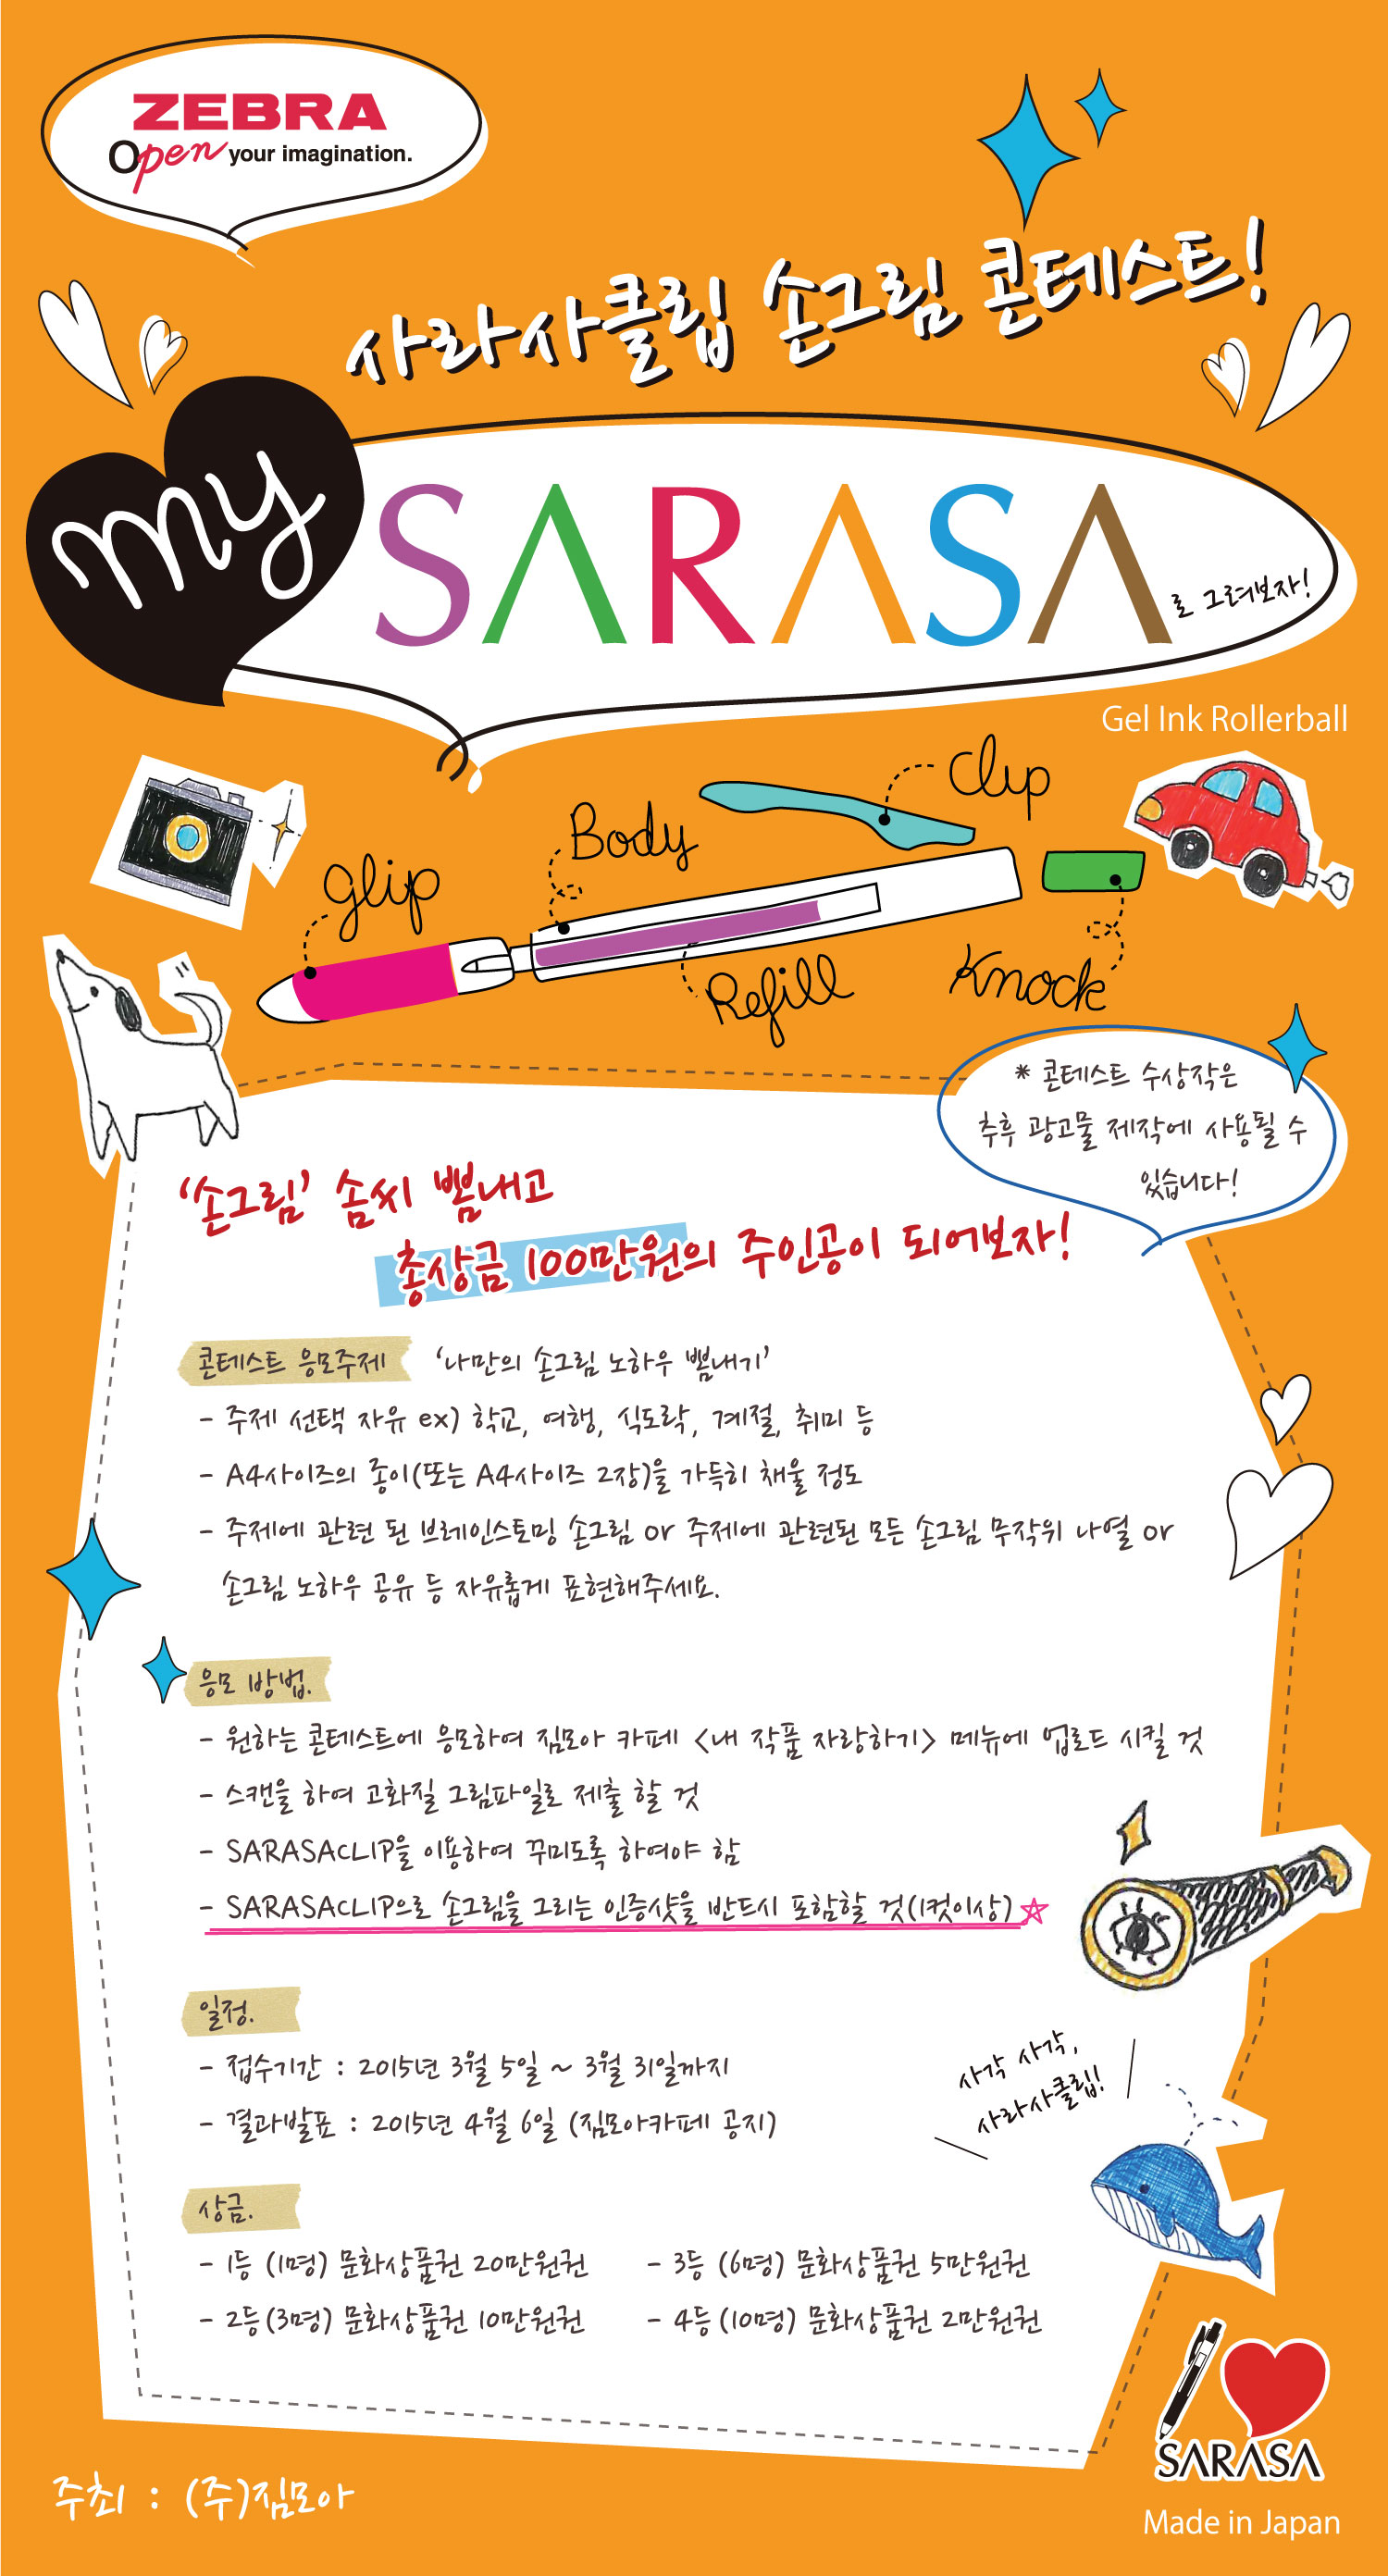 ZEBRA
Open your imagination.
사라사클립 손그림 콘테스트!
my
SARASA
로 그려보자!
Gel Ink Rollerball
Clip
Body
glip
Refill
Knock
* 콘테스트 수상작은
추후 광고물 제작에 사용될 수
있습니다!
'손그림' 솜씨 뽐내고
총상금 100만원의 주인공이 되어보자!
콘테스트 응모주제 '나만의 손그림 노하우 뽐내기'
- 주제 선택 자유 ex) 학교, 여행, 식도락, 계절, 취미 등
- A4사이즈의 종이(또는 A4사이즈 2장)을 가득히 채울 정도
- 주제에 관련 된 브레인스토밍 손그림 or 주제에 관련된 모든 손그림 무작위 나열 or
손그림 노하우 공유 등 자유롭게 표현해주세요.
응모 방법.
- 원하는 콘테스트에 응모하여 짐모아 카페 <내 작품 자랑하기> 메뉴에 업로드 시킬 것
- 스캔을 하여 고화질 그림파일로 제출 할 것
- SARASACLIP을 이용하여 꾸미도록 하여야 함
- SARASACLIP으로 손그림을 그리는 인증샷을 반드시 포함할 것(1컷이상)
일정.
- 접수기간 : 2015년 3월 5일 ~ 3월 31일까지
- 결과발표 : 2015년 4월 6일 (짐모아카페 공지)
사각 사각,
사라사클립!
상금.
- 1등 (1명) 문화상품권 20만원권 - 3등 (6명) 문화상품권 5만원권
- 2등 (3명) 문화상품권 10만원권 - 4등 (10명) 문화상품권 2만원권
SARASA
주최 : (주)짐모아
Made in Japan